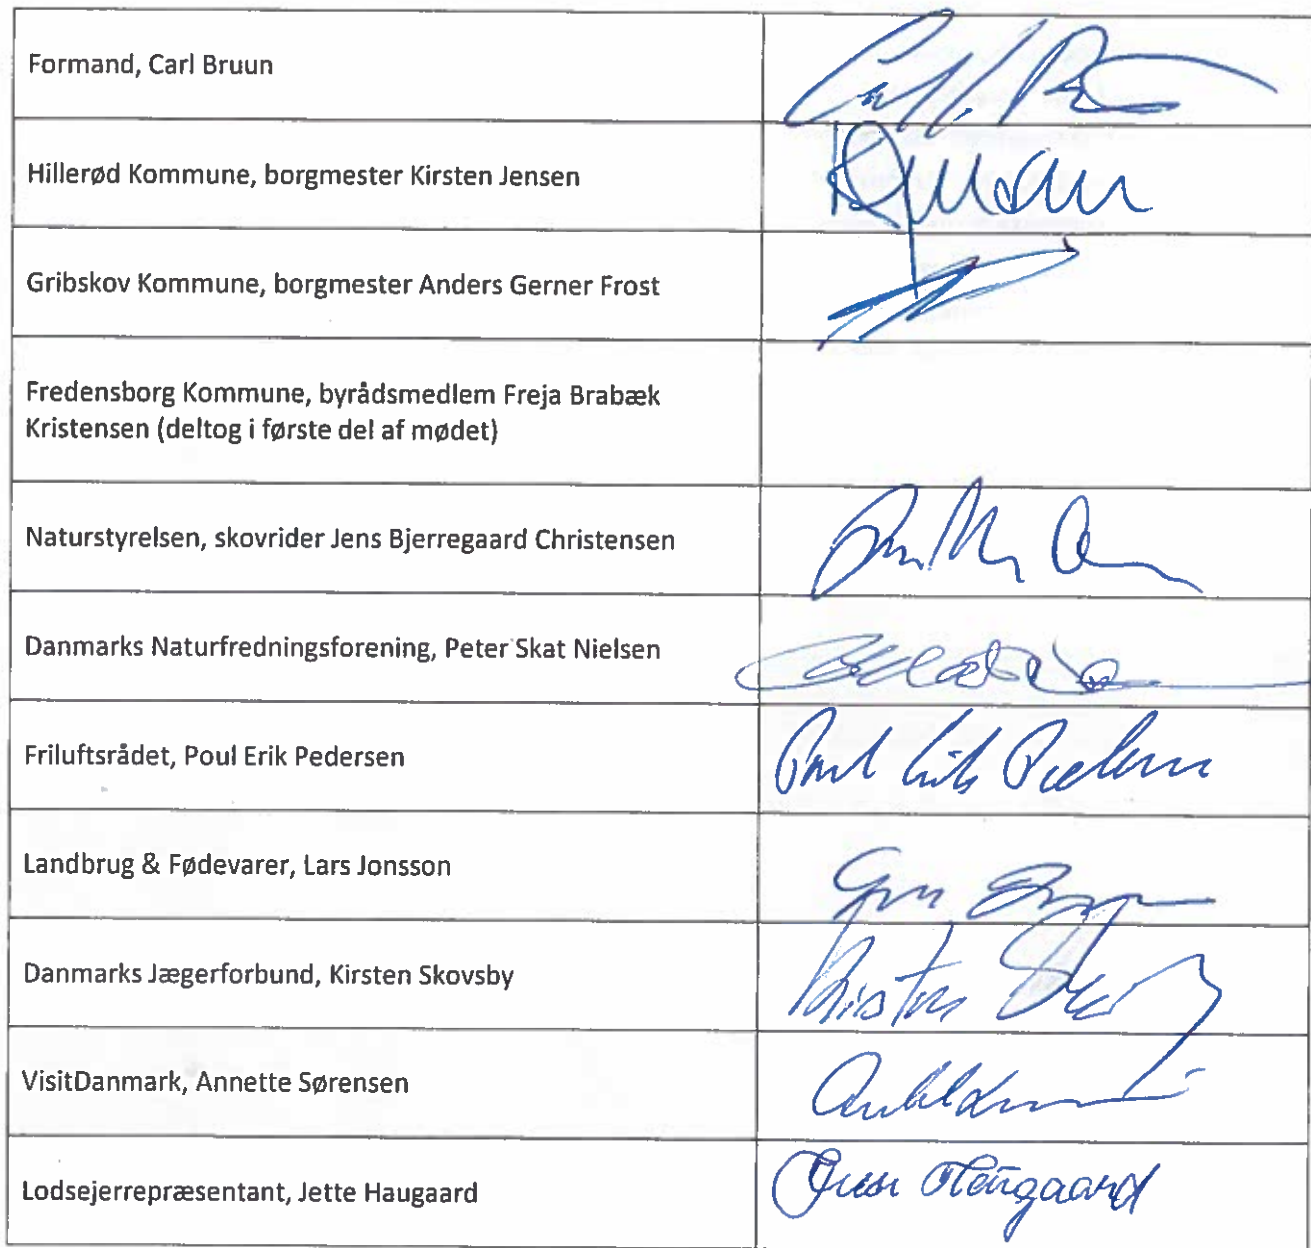 Formand, Carl Bruun
Hillerød Kommune, borgmester Kirsten Jensen
Gribskov Kommune, borgmester Anders Gerner Frost
Fredensborg Kommune, byrådsmedlem Freja Brabæk
Kristensen (deltog i første del af mødet)
Naturstyrelsen, skovrider Jens Bjerregaard Christensen
Danmarks Naturfredningsforening, Peter Skat Nielsen
Friluftsrådet, Poul Erik Pedersen
Poul Erik Pedersen
Landbrug & Fødevarer, Lars Jonsson
Danmarks Jægerforbund, Kirsten Skovsby
Kirsten
VisitDanmark, Annette Sørensen
Lodsejerrepræsentant, Jette Haugaard
Haugaard